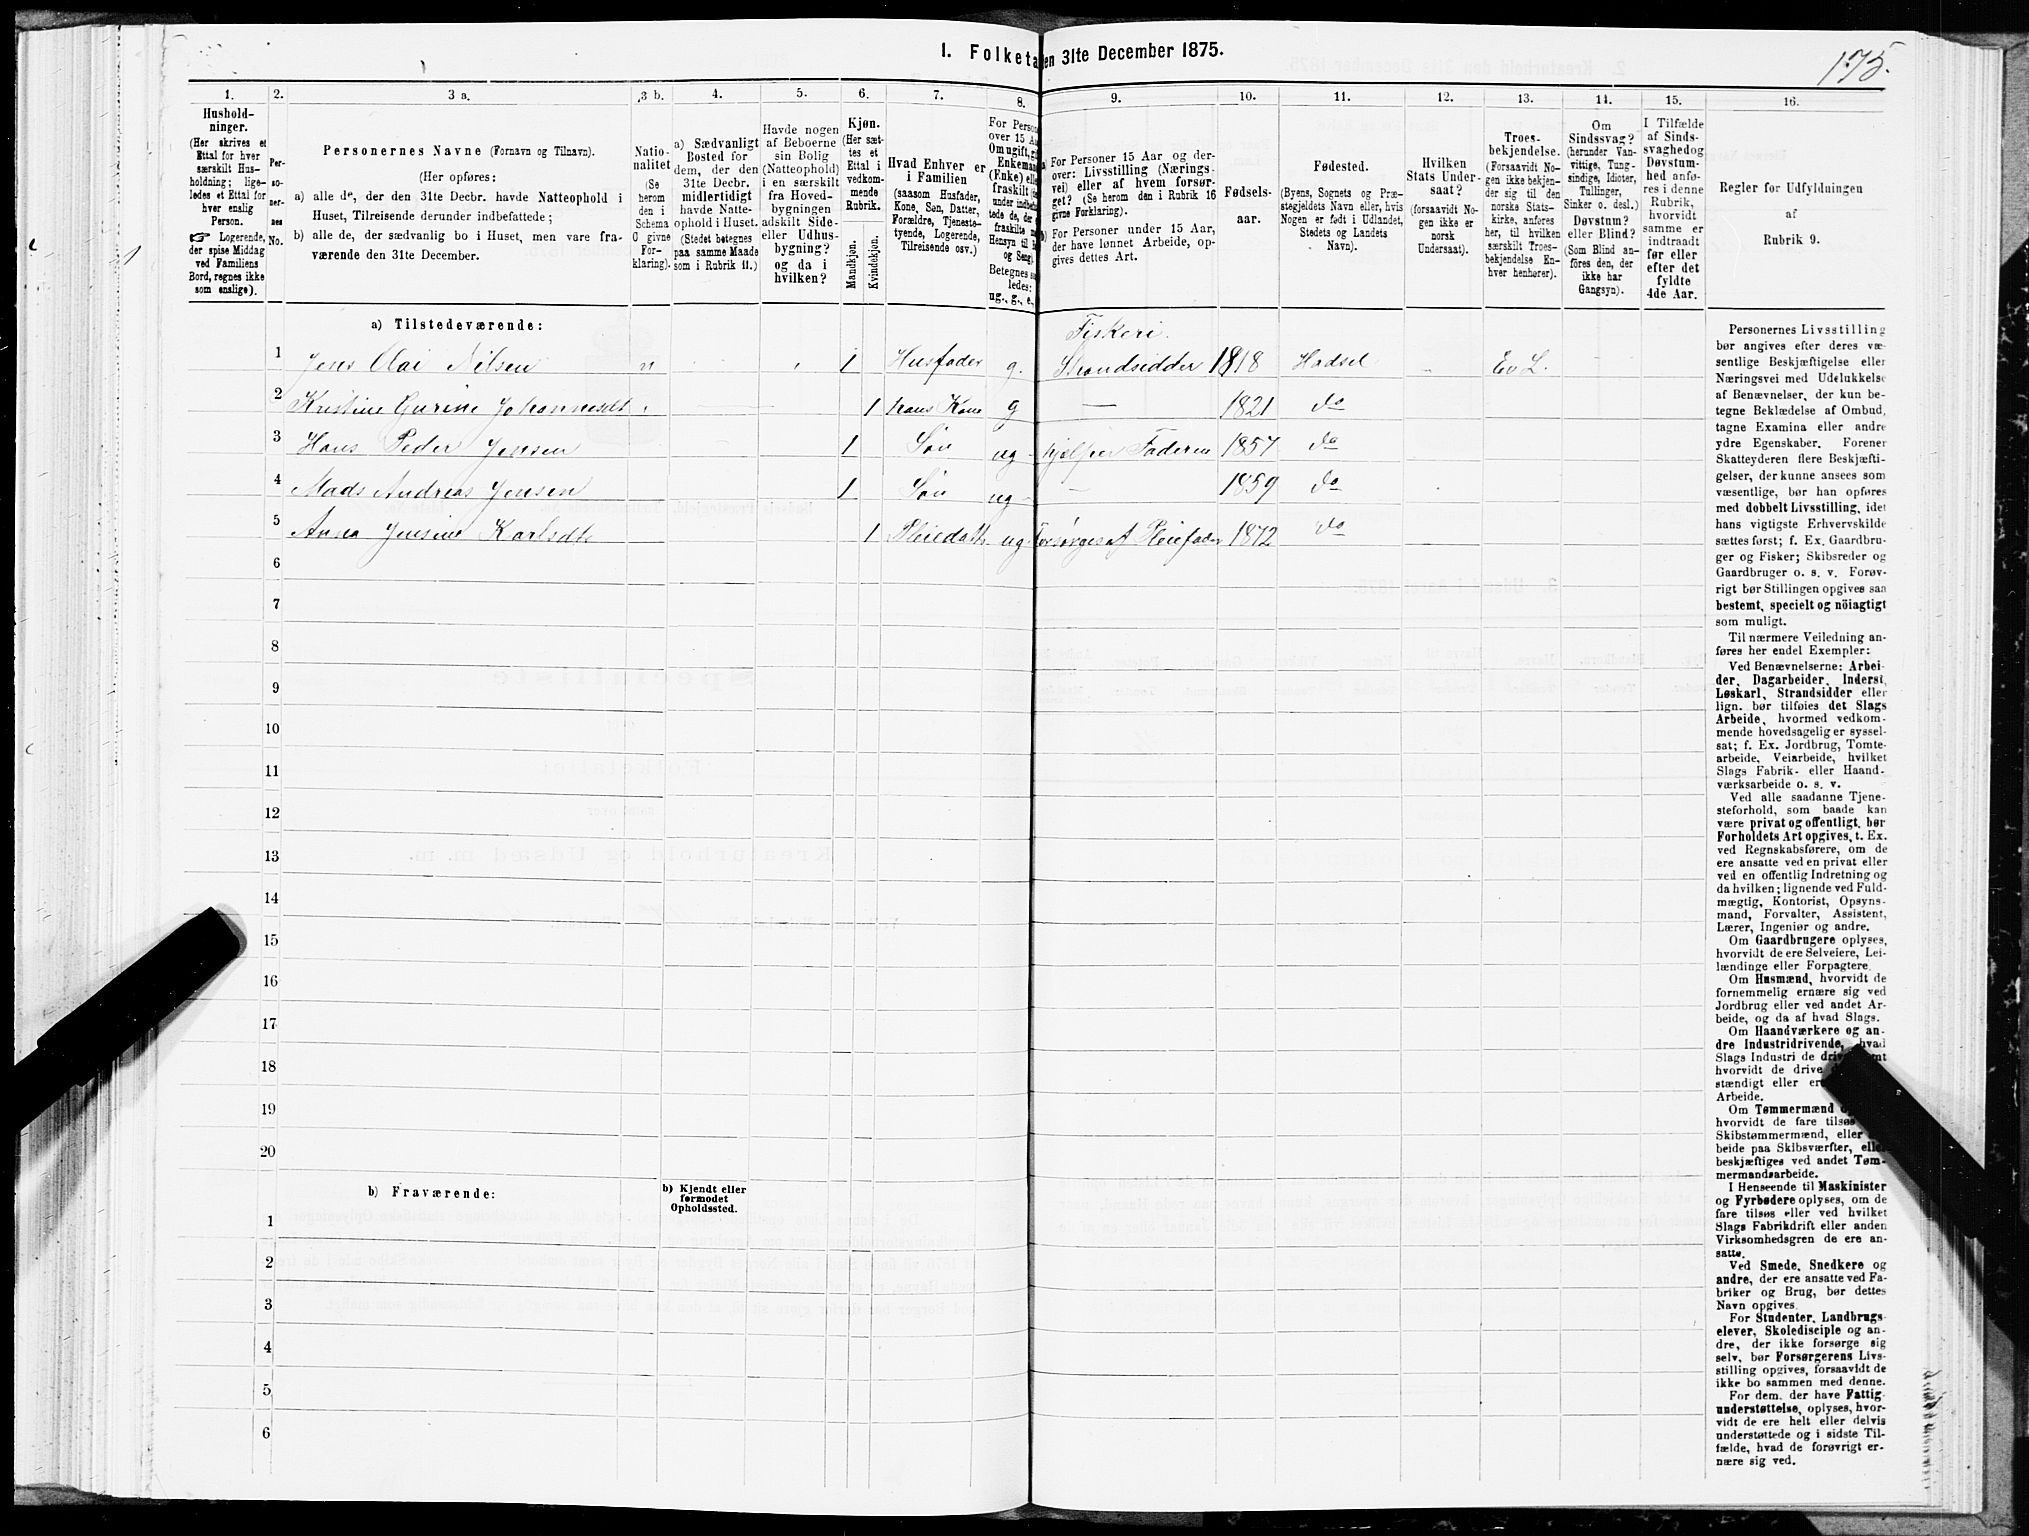 175.
I. Folketa en 31te December 1875.
1. 2. 3 a. 3 b. 4. 5. 6. 7. 8. 9. 10. 11. 12. 13. 14. 15. 16.
Hushold-
ninger.
(Her skrives et
Ettal for hver
særskilt Hus-
holdning; lige-
ledes et Ettal for
hver enslig
Person.
☞ Logerende,
der spise Middag
ved Familiens
Bord, regnes ikke
som enslige).
Per-
so-
ner-
nes
No.
Personernes Navne (Fornavn og Tilnavn).
(Her opføres:
a) alle de, der den 31te Decbr. havde Natteophold i
Huset, Tilreisende derunder indbefattede;
b) alle de, der sædvanlig bo i Huset, men vare fra-
værende den 31te December.
Natio-
nalitet
(Se
herom
den i
Schema
O givne
For-
klaring).
a) Sædvanligt
Bosted for
dem, der den
31te Decbr.
midlertidigt
havde Natte-
ophold i Huset.
(Stedet betegnes
paa samme Maade
som i Rubrik 11.)
Havde nogen
af Beboerne
sin Bolig
(Natteophold)
i en særskilt
fra Hoved-
bygningen
adskilt Side-
eller Udhus-
bygning?
og da i
hvilken?
Kjøn.
(Her sæt-
tes et
Ettal i
vedkom-
mende
Rubrik.
Mandkjøn.
Kvindekjøn.
Hvad Enhver er
i Familien
(saasom Husfader,
Kone, Søn, Datter,
Forældre, Tjeneste-
tyende, Logerende,
Tilreisende osv.)
For Person
over 15 Aa
Om ugift, gi
Enkeman
(Enke) elle
fraskilt
Hensyn til
og Seng).
Betegnes
ledes:
ug., g., e.,
a) For Personer 15 Aar og der-
over: Livsstilling (Nærings-
vei) eller af hvem forsør-
get? (Se herom den i Rubrik 16
givne Forklaring).
b) For Personer under 15 Aar,
der have lønnet Arbeide, op-
gives dettes Art.
Fødsels-
aar.
Fødested.
(Byens, Sognets og Præ-
stegjeldets Navn eller, hvis
Nogen er født i Udlandet,
Stedets og Landets
Navn).
Hvilken
Stats Under-
saat?
(forsaavidt No-
gen ikke er
norsk
Undersaat).
Troes-
bekjendelse.
(Forsaavidt No-
gen ikke bekjen-
der sig til den
norske Stats-
kirke, anføres
her, til hvilken
særskilt Troes-
bekjendelse En-
hver henhører).
Om
Sindssvag?
(herunder Van-
vittige, Tung-
sindige, Idioter,
Tullinger,
Sinker o. desl.)
Døvstum?
eller Blind?
(Som Blind an-
føres den, der
ikke har
Gangsyn).
I Tilfælde
af Sinds-
svaghed og
Døvstum-
hed anfø-
res i denne
Rubrik,
hvorvidt
samme er
indtraadt
før eller
efter det
fyldte
4de Aar.
Regler for Udfyldningen
af
Rubrik 9.
a) Tilstedeværende:
Fiskeri.
1 Jens Olai Nilsen n 1 Husfader g. Strandsidder 1818 Hadsel Ev L.
2 Kristine Gurine Johannesdt 1 hans Kone g — 1821 do
3 Hans Peder Jensen 1 Søn ug hjælper Faderen 1857 do
4 Mads Andreas Jensen 1 Søn ug — 1859 do
5 Anna Jensine Karlsdtr 1 Pleiedatt. ug Forsørges af Pleiefader 1872 do
6
7
8
9
10
11
12
13
14
15
16
17
18
19
20
b) Fraværende:
b) Kjendt eller
formodet
Opholdssted.
1
2
3
4
5
6
Personernes Livsstilling
bør angives efter deres væ-
sentlige Beskjæftigelse eller
Næringsvei med Udelukkelse
af Benævnelser, der kun be-
tegne Beklædelse af Ombud,
tagne Examina eller andre
ydre Egenskaber. Forener
Skatteyderen flere Beskjæfti-
gelser, der kunne ansees som
væsentlige, bør han opføres
med dobbelt Livsstilling, idet
hans vigtigste Erhvervskilde
sættes først; f. Ex. Gaardbru-
ger og Fisker; Skibsreder og
Gaardbruger o. s. v. Forøv-
rigt bør Stillingen opgives saa
bestemt, specielt og nöiagtigt
som muligt.
Til nærmere Veiledning an-
føres her endel Exempler:
Ved Benævnelserne: Arbei-
der, Dagarbeider, Inderst,
Løskarl, Strandsidder eller
lign. bør tilføies det Slags
Arbeide, hvormed vedkom-
mende hovedsagelig er syssel-
sat; f. Ex. Jordbrug, Tomte-
arbeide, Veiarbeide, hvilket
Slags Fabrik- eller Haand-
værksarbeide o. s. v.
Ved alle saadanne Tjene-
steforhold, som baade kan
være privat og offentligt, bør
Forholdets Art opgives, t. Ex.
ved Regnskabsførere, om de
ere ansatte ved en privat eller
ved en offentlig Indretning og
da hvilken; lignende ved Fuld-
mægtig, Kontorist, Opsyns-
mand, Forvalter, Assistent,
Lærer, Ingeniør og andre.
Om Gaardbrugere oplyses,
hvorvidt de ere Selveiere, Lei-
lændinge eller Forpagtere.
Om Husmænd, hvorvidt de
fornemmelig ernære sig ved
Jordbrug eller ved andet Ar-
beide, og da af hvad Slags.
Om Haandværkere og an-
dre Industridrivende, hvad
Slags Industri de driv mt
hvorvidt de drive
stændigt eller er
Arbeide.
Om Tømmermænd
hvorvidt de fare tilsøs
Skibstømmermænd, eller
beide paa Skibsværfter, eller
beskjæftiges ved andet Tøm-
mermandsarbeide.
I Henseende til Maskinister
og Fyrbødere oplyses, om de
fare tilsøs eller ved hvilket
Slags Fabrikdrift eller anden
Virksomhedsgren de ere an-
satte.
Ved Smede, Snedkere og
andre, der ere ansatte ved Fa-
briker og Brug, bør dettes
Navn opgives.
For Studenter, Landbrugs-
elever, Skoledisciple og an-
dre, der ikke forsørge sig
selv, bør Forsørgerens Livs-
stilling opgives, forsaavidt de
ikke bo sammen med denne.
For dem, der have Fattig-
understøttelse, oplyses, hvor-
vidt de ere helt eller delvis
understøttede og i sidste Til-
fælde, hvad de forøvrigt er-
nære sig ved.